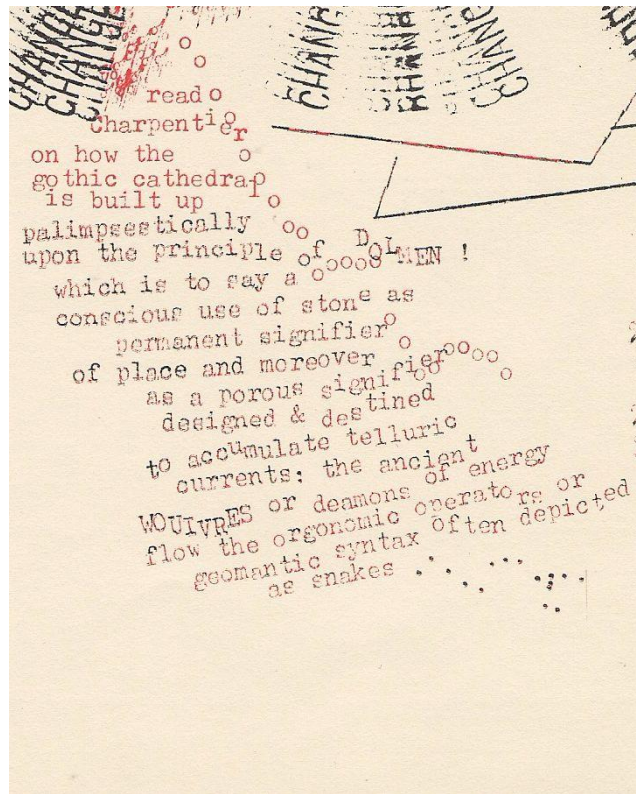 CHANGE
CHANGE
CHANGE
CHANGE
CHANGE
CHANGE
read
Charpentier
on how the
gothic cathedral
is built up
palimpsestically
upon the principle of DOLMEN !
which is to say a
conscious use of stone as
permanent signifier
of place and moreover
as a porous signifier
designed & destined
to accumulate telluric
currents: the ancient
WOUIVRES or deamons of energy
flow the orgonomic operators or
geomantic syntax often depicted
as snakes